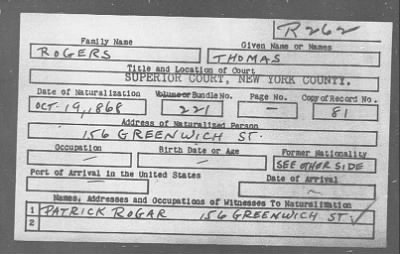 R262
Family Name Given Name or Names
ROGERS THOMAS
Title and Location of Court
SUPERIOR COURT, NEW YORK COUNTY.
Date of Naturalization Volume or Bundle No. Page No. Copy of Record No.
OCT. 19, 1868 221 — 81
Address of Naturalized Person
156 GREENWICH ST.
Occupation Birth Date or Age Former Nationality
— — SEE OTHER SIDE
Port of Arrival in the United States Date of Arrival
— —
Names, Addresses and Occupations of Witnesses To Naturalization
1 PATRICK ROGAR 156 GREENWICH ST ✓
2